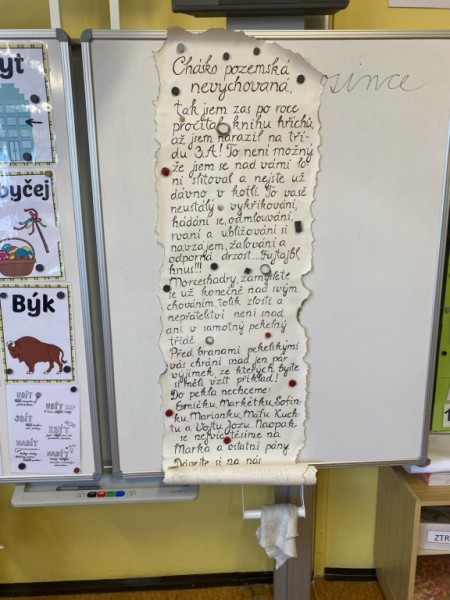 yt
byčej
Býk
UBÍT
ZBÍT
NABÍT
since
Chásko pozemská
nevychovaná,
tak jsem zas po roce
pročítal knihu hříchů,
až jsem narazil na tří-
du 3.A! To není možný
že jsem se nad vámi lo
ni slitoval a nejste už
dávno v kotli. To vaše
neustálý vykřikování,
hádání se, odmlouvání,
rvaní a ubližování si
navzájem, žalování a
odporná drzost... Fujtajbl,
hnus!!!
zamyslete
se už konečně nad svým
chováním, tolik zlosti a
nepřátelství není snad
ani v samotný pekelný
třídě.
Před branami pekelskými
vás chrání snad jen pár
výjimek, ze kterých byste
si měli vzít příklad!
Do pekla nechceme:
Emičku, Markétku, Sofin-
ku, Mariánku, Máťu Kuch-
tu a Vojtu Jozu. Naopak
se nejvíc těšíme na
Marka a ostatní pány
Dávejte si na nás
ZTR